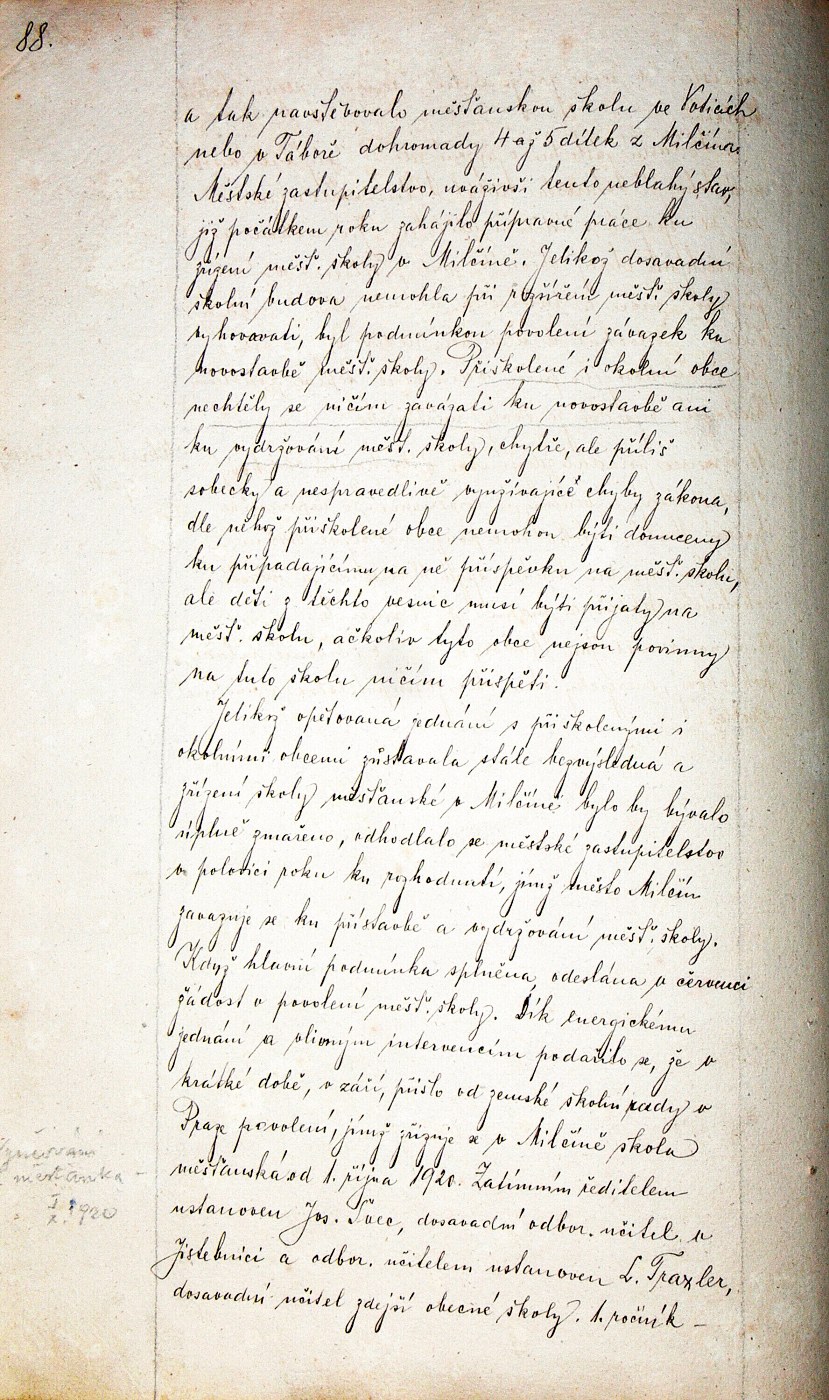 88.
a tak navštěvovalo měšťanskou školu ve Voticích
nebo v Táboře dohromady 4 až 5 dítek z Milčína.
Městské zastupitelstvo, uváživši tento neblahý stav,
již počátkem roku zahájilo přípravné práce ku
zřízení měšť. školy v Milčíně. Jelikož dosavadní
školní budova nemohla při rozšíření měšť. školy
vyhovovati, byl podmínkou povolení závazek ku
novostavbě měšť. školy. Přiškolené i okolní obce
nechtěly se ničím zavázati ku novostavbě ani
ku vydržování měšť. školy, chytře, ale příliš
sobecky a nespravedlivě využívajíce chyby zákona,
dle něhož přiškolené obce nemohou býti donuceny
ku připadajícímu na ně příspěvku na měšť. školu,
ale děti z těchto vesnic musí býti přijaty na
měšť. školu, ačkoliv tyto obce nejsou povinny
na tuto školu ničím přispěti.
Jelikož opětovaná jednání s přiškolenými i
okolními obcemi zůstavala stále bezvýsledná a
zřízení školy měšťanské v Milčíně bylo by bývalo
úplně zmařeno, odhodlalo se městské zastupitelstvo
v polovici roku ku rozhodnutí, jímž město Milčín
zavazuje se ku přístavbě a vydržování měšť. školy.
Když hlavní podmínka splněna, odeslána v červenci
žádost o povolení měšť. školy. Dík energickému
jednání a vlivným intervencím podařilo se, že v
krátké době, v září, přišlo od zemské školní rady v
Praze povolení, jímž zřizuje se v Milčíně škola
měšťanská od 1. října 1920. Zatímním ředitelem
ustanoven Jos. Švec, dosavadní odbor. učitel v
Jistebnici a odbor. učitelem ustanoven L. Traxler,
dosavadní učitel zdejší obecné školy. 1. ročník –
měšťanka –
1920